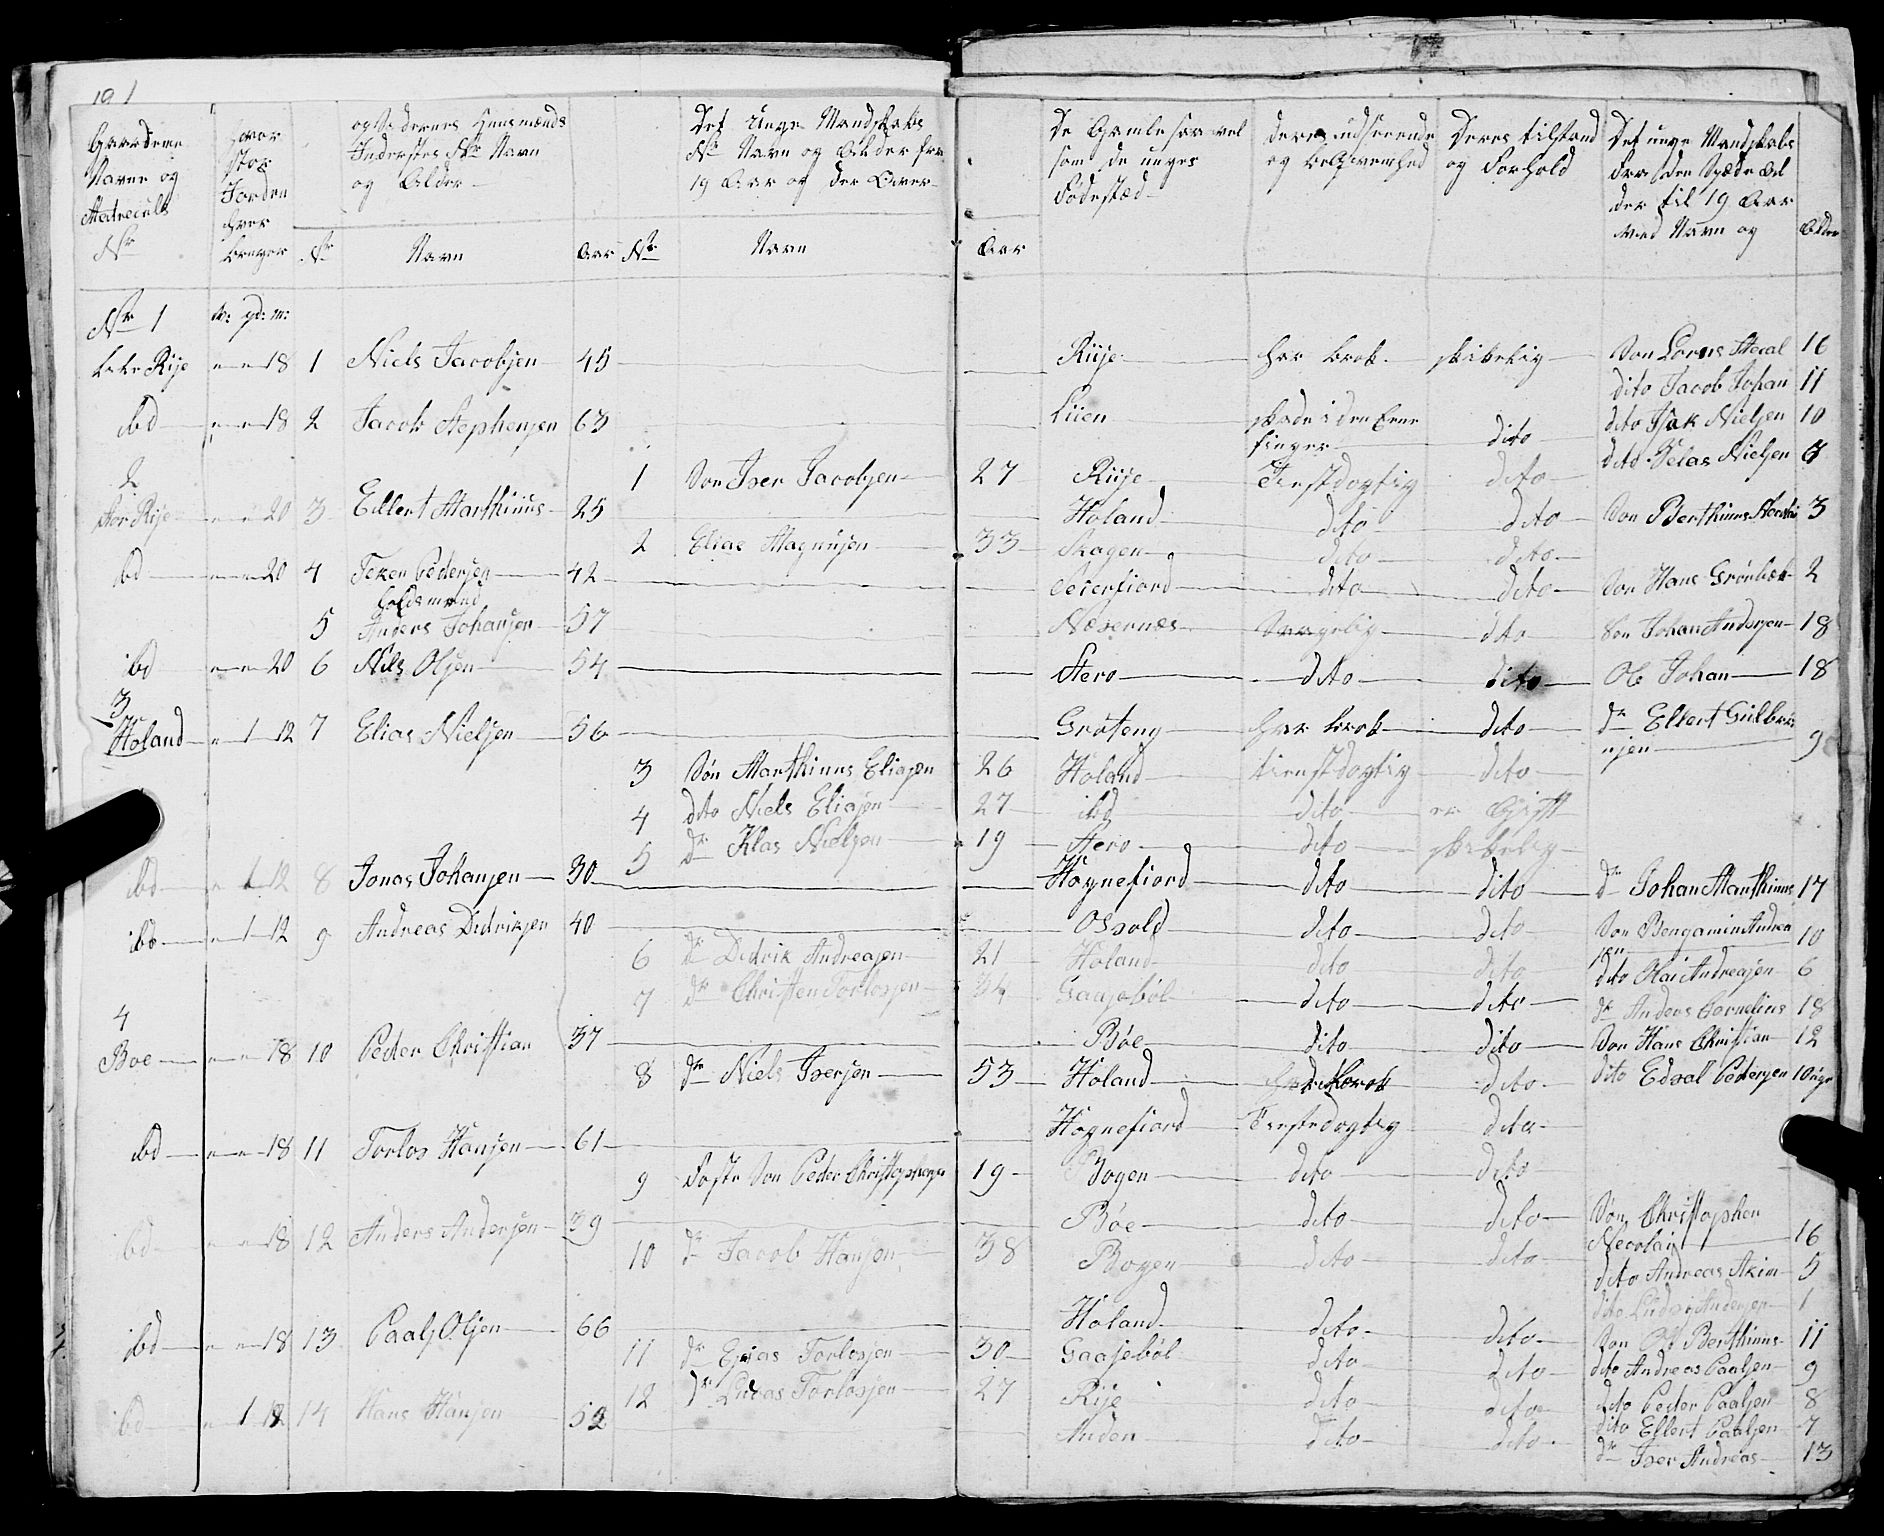 Gaardene Navne og Matreculs No
hvor stor Jorden hver bruger
og Sædernes Huusmænds Inderstes No Navn og Alder
Det Unge Mandskabs No Navn og Alder fra 19 Aar og der Over
De Gamle saavel som de unges Fødestæd
Deres udseende og beqvemhed
Deres tilstand og Forhold
Det unge Mandskabs fra den Spæde Alder til 19 Aar ved Navn og Alder
No Navn Aar No Navn Aar
No 1 gd: m:
Rije 18 1 Niels Jacobsen 45 Riije har brok skikelig Søn 16
dito Jacob Johan 11
ibd 18 2 Jacob Stephensen 63 Liien skade i den Eene finger dito dito Isak Nielsen 10
dito Nielsen
2
1 Søn Iver Jacobsen 27 Riije Tienstdygtig dito
Stor Rije 20 3 Ellert Marthinus 25 Holand dito dito Søn Berthinus 3
2 Elias Magnusen 33 Skagen dito dito
ibd 20 4 Pedersen 42 dito dito Søn Hans Grønbek 2
5 Anders Johansen 57 Næsernæs dito Søn Johan Andersen 18
ibd 20 6 Nils Olsen 54 Stero dito dito Ole Johan 18
3
Holand 1 12 7 Elias Nielsen 56 Grøteng har brok dito dr Ellert
nsen 9
3 Søn Marthinus Eliasen 26 Holand tienstdygtig dito
4 dito Niels Eliasen 27 ibd dito er Gift
5 dr Klas Nielsen 19 Stero dito skikelig
ibd 1 12 8 Jonas Johansen 30 Hognefiord dito dito dr Johan Marthinus 17
ibd 1 12 9 Andreas Didriksen 40 Osvold dito dito Søn Bengamin Andrea
sen 10
6 dr Didrik Andreasen 21 Holand dito dito dito Olai Andreasen 6
7 dr Christen Torlossen 34 Gaasebøl dito dito dr Anders Cornelius 18
4
Boe 18 10 Peder Christian 37 Bøe dito dito Søn Hans Christian 12
8 dr Niels Iversen 53 Holand dito dito Edval Pedersen 10
ibd 18 11 Torlos Hansen 61 Hognefiord Tienstdygtig dito
9 Foster Søn Peder 19 Bogen dito dito
ibd 18 12 Anders Andersen 39 Bøe dito dito Søn Christopher
Necolai 16
10 dr Jacob Hansen 38 Bogen dito dito dito Andreas Akim 5
dito Andersen 1
ibd 18 13 Paal Olsen 66 Holand dito dito Søn Ole Berthinus 11
11 dr Elias Torlossen 30 Gaasebøl dito dito dito Andreas Paalsen 9
12 dr Lucas Torlossen 27 Rije dito dito dito Peder Paalsen 8
ibd 1 12 14 Hans Hansen 52 Anden dito dito dito Ellert Paalsen 7
dr Iver Andreas 13